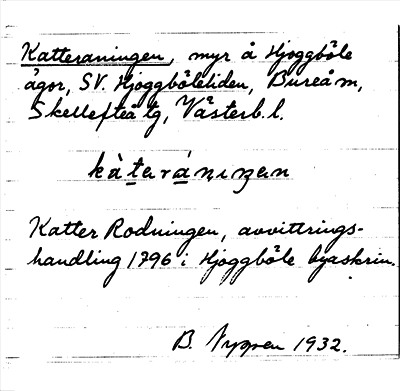 Katteraningen, myr å Hjoggböle
ägor, SV. Hjoggböleliden, Bureå m,
Skellefteå tg, Västerb. l.
kàterániŋen
Katter Rodningen, avvittrings-
handling 1796 i Hjoggböle byaskrin.
B. Nygren 1932.